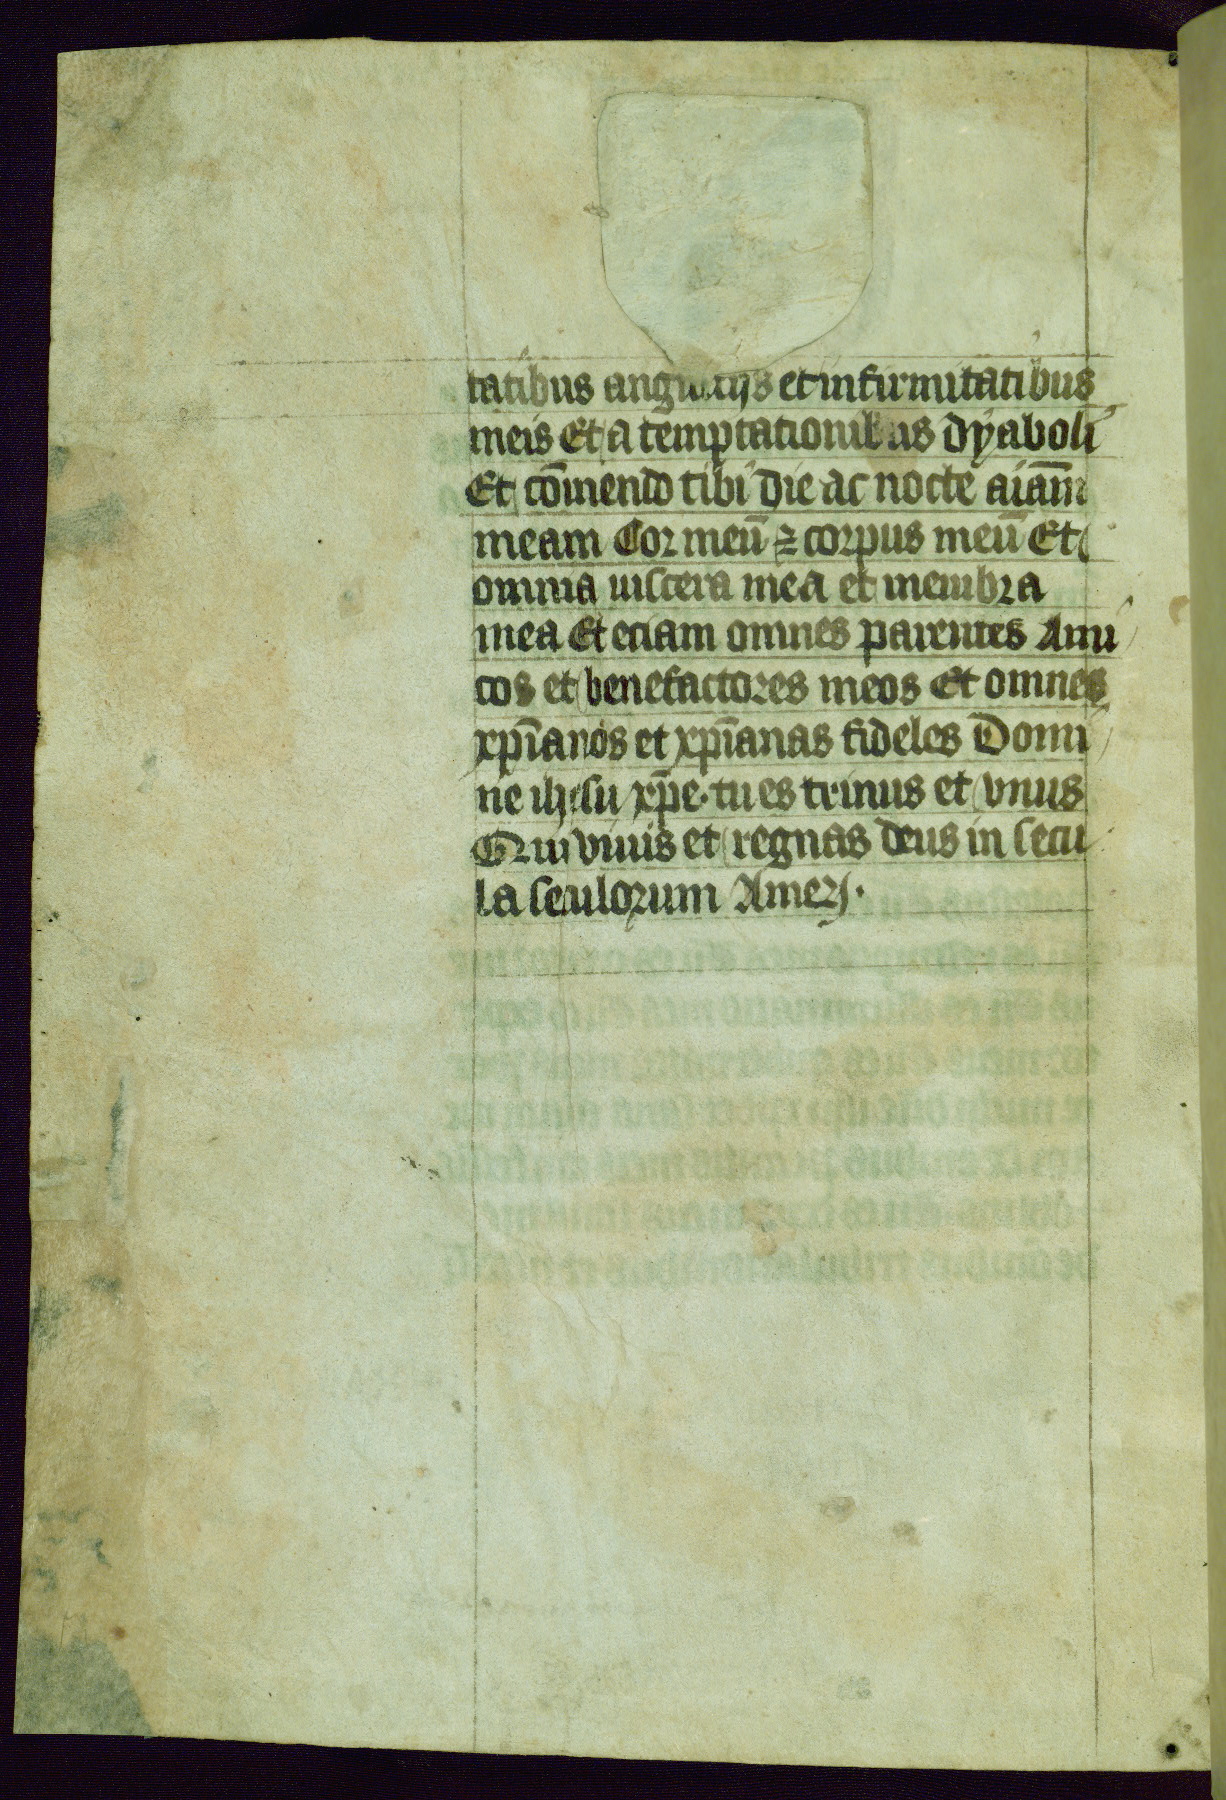 tatibus angustijs et infirmitatibus
meis Et a temptationibus dyaboli
Et co͞mendo tibi die ac nocte ai͞am
meam Cor meu͞ ⁊ corpus meu͞ Et
omnia uiscera mea et membra
mea Et etiam omnes parentes Ami
cos et benefactores meos Et omnes
xp͞ianos et xp͞ianas fideles Domi
ne ihesu xp͞e· tu es trinus et vnus
Qui viuis et regnas deus in secu
la seculorum Amen·